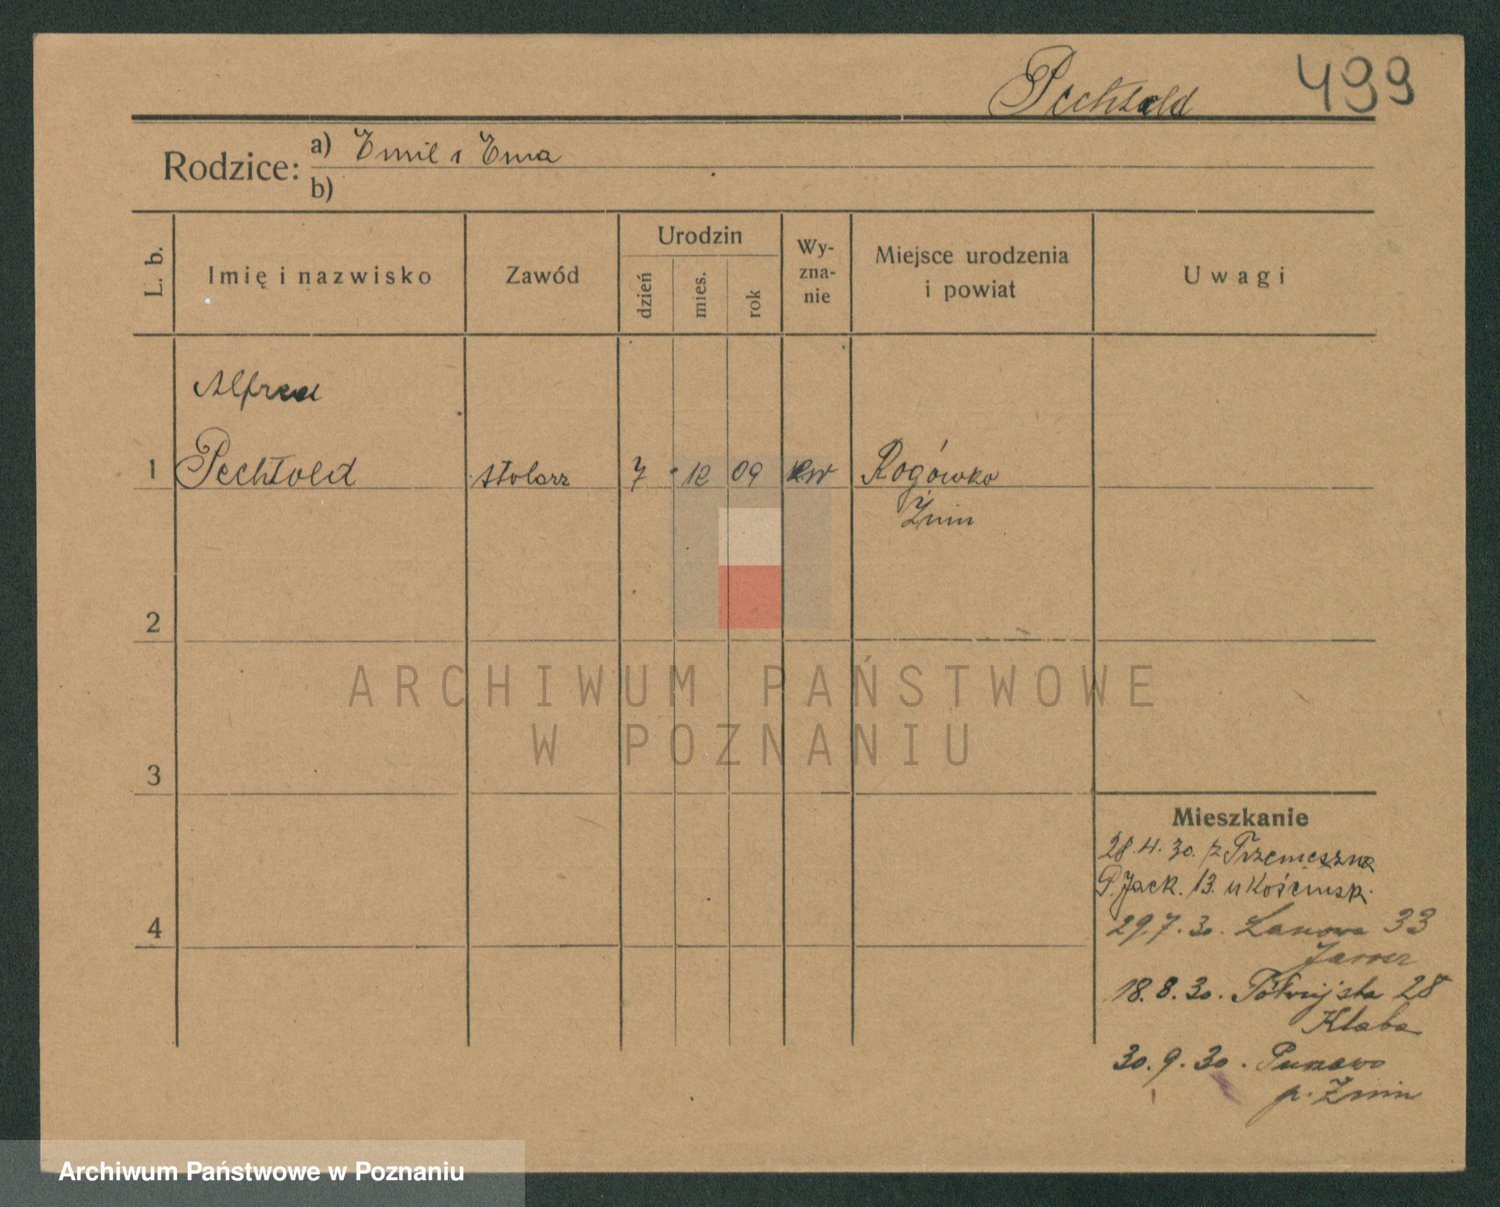 Pechtold 499
Rodzice: a) Emil i Ema
b)
L. b. Imię i nazwisko Zawód Urodzin dzień mies. rok Wy-zna-nie Miejsce urodzenia i powiat Uwagi
Alfred
1 Pechtold stolarz 7 12 09 ew Rogówko
Żnin
2
ARCHIWUM PAŃSTWOWE
W POZNANIU
3
Mieszkanie
28.4.30. z Trzemeszna
P. Jack. 13. u Kościńsk.
4
29.7.30. Łanowa 33
18.8.30. Półwiejska 28
Klaba
30.9.30.
p. Żnin
Archiwum Państwowe w Poznaniu